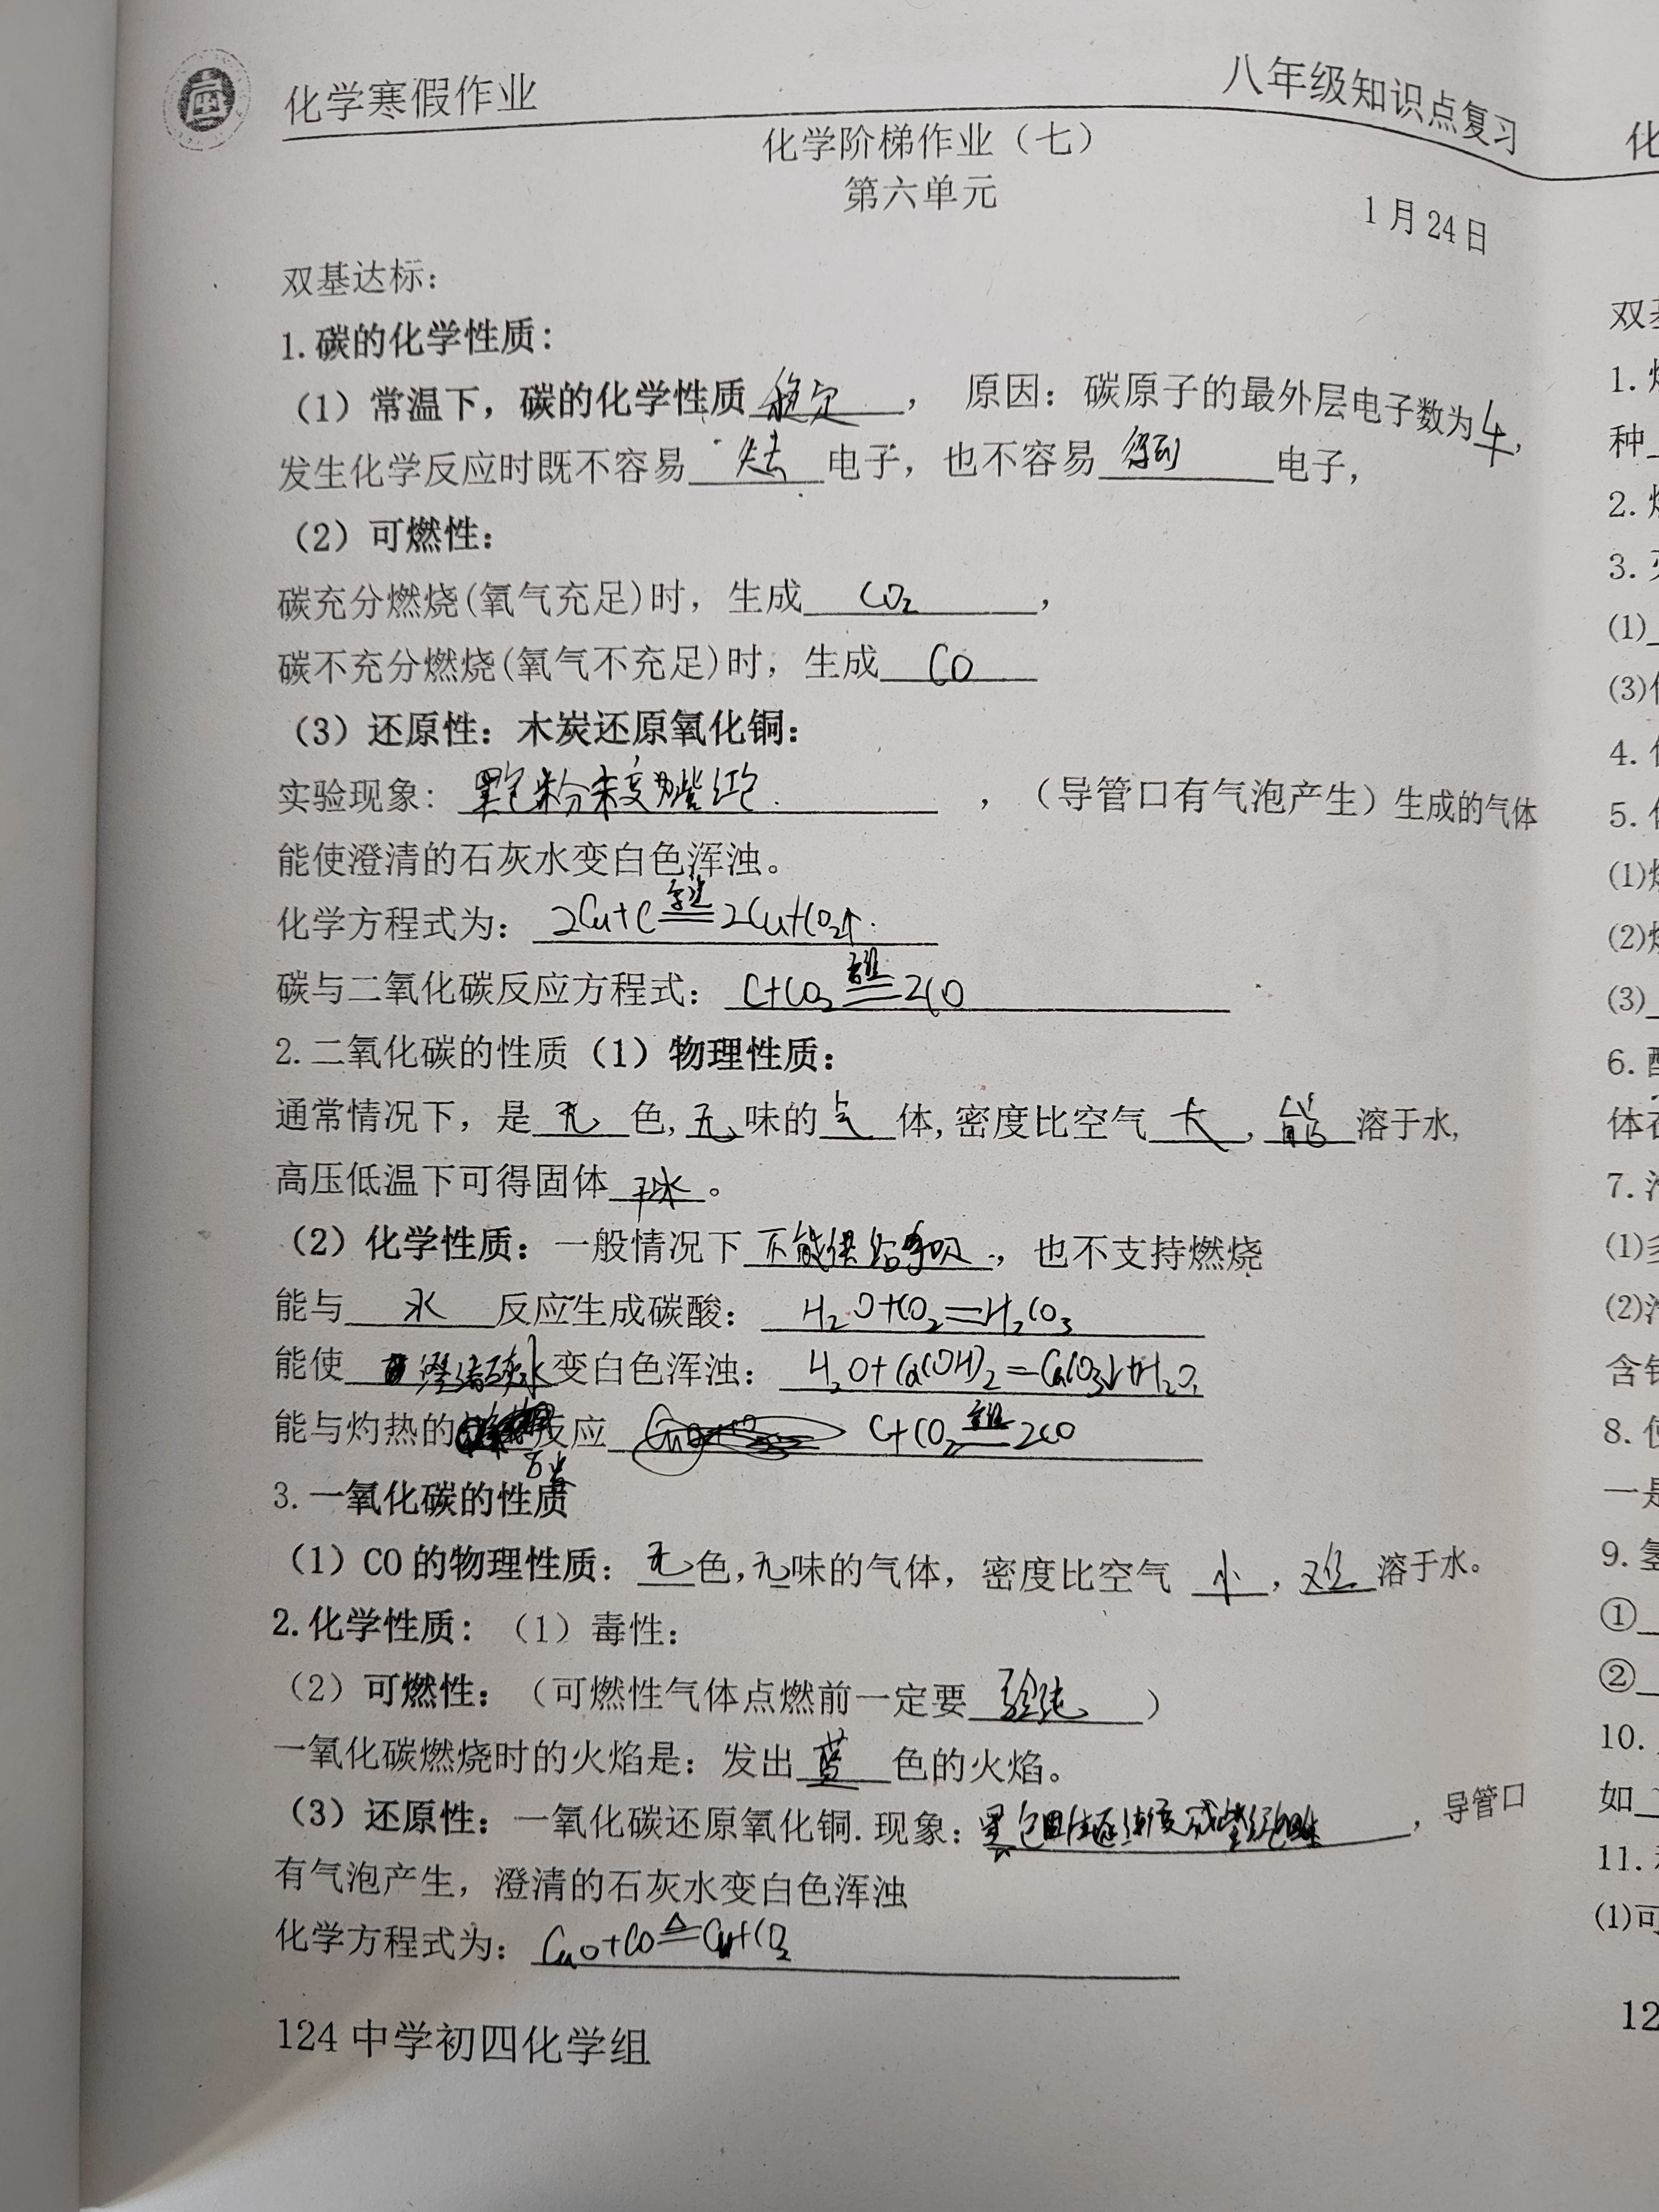 化学寒假作业
八年级知识点复习
化学阶梯作业（七）
第六单元
1月24日
双基达标：
1.碳的化学性质：
（1）常温下，碳的化学性质 稳定 ， 原因：碳原子的最外层电子数为4，
发生化学反应时既不容易 失去 电子，也不容易 得到 电子，
（2）可燃性：
碳充分燃烧(氧气充足)时，生成 CO₂ ，
碳不充分燃烧(氧气不充足)时，生成 CO
（3）还原性：木炭还原氧化铜：
实验现象： 黑色粉末变为紫红色. ，（导管口有气泡产生）生成的气体
能使澄清的石灰水变白色浑浊。
化学方程式为： 2Cu+C 高温 == 2Cu+CO₂↑.
碳与二氧化碳反应方程式： C+CO₂ 高温 == 2CO
2.二氧化碳的性质（1）物理性质：
通常情况下，是 无 色, 无 味的 气 体,密度比空气 大 , 能 溶于水,
高压低温下可得固体 干冰 。
（2）化学性质：一般情况下 不能供给呼吸 ，也不支持燃烧
能与 水 反应生成碳酸： H₂O+CO₂==H₂CO₃
能使 澄清石灰水 变白色浑浊： H₂O+Ca(OH)₂=CaCO₃↓+H₂O.
能与灼热的 反应 C+CO₂ 高温 == 2CO
3.一氧化碳的性质
（1）CO的物理性质： 无 色, 无 味的气体，密度比空气 小 ， 难 溶于水。
2.化学性质：（1）毒性：
（2）可燃性：（可燃性气体点燃前一定要 验纯 ）
一氧化碳燃烧时的火焰是：发出 蓝 色的火焰。
（3）还原性：一氧化碳还原氧化铜.现象： 黑色固体逐渐变成紫红色 ，导管口
有气泡产生，澄清的石灰水变白色浑浊
化学方程式为： CuO+CO △ == Cu+CO₂
124中学初四化学组
化
双基
1.
种
2.
3.
(1)
(3)
4.
5.
(1)
(2)
(3)
6.
体
7.
(1)
(2)
8.
一是
9.
①
②
10.
如
11.
(1)可
12